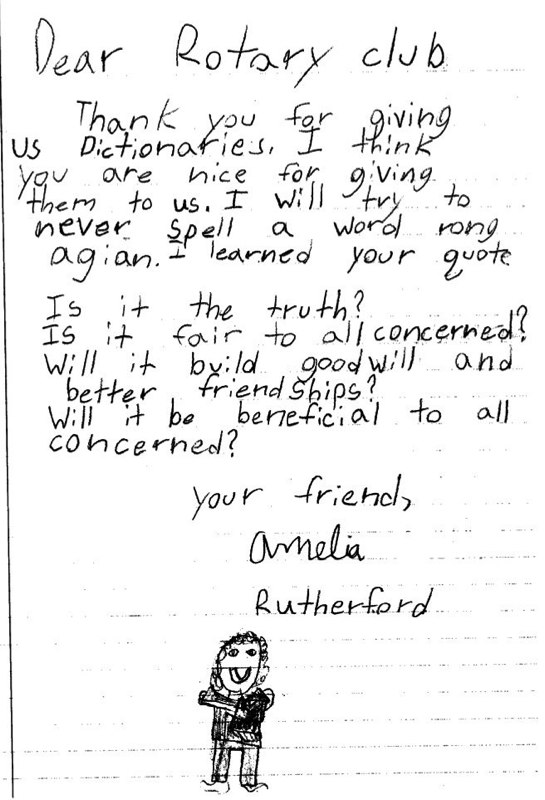 Dear Rotary club
Thank you for giving
us Dictionaries. I think
you are nice for giving
them to us. I will try to
never spell a word rong
agian. I learned your quote
Is it the truth?
Is it fair to all concerned?
Will it build goodwill and
better friendships?
Will it be beneficial to all
concerned?
your friend,
Amelia
Rutherford